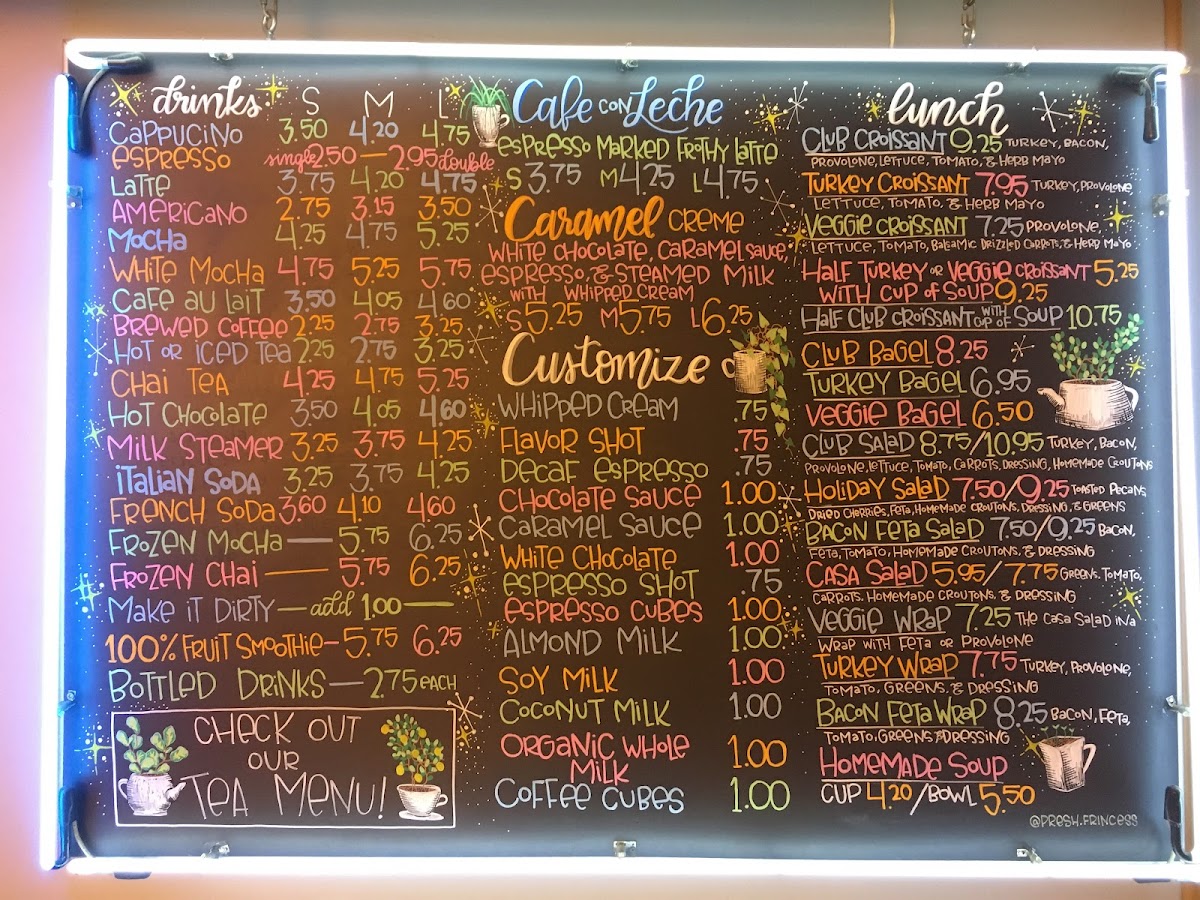 drinks S M L
Cappucino 3.50 4.20 4.75
espresso single 2.50 — 2.95 double
Latte 3.75 4.20 4.75
Americano 2.75 3.15 3.50
Mocha 4.25 4.75 5.25
White Mocha 4.75 5.25 5.75
Cafe au Lait 3.50 4.05 4.60
Brewed Coffee 2.25 2.75 3.25
Hot or iced Tea 2.25 2.75 3.25
Chai Tea 4.25 4.75 5.25
Hot Chocolate 3.50 4.05 4.60
Milk Steamer 3.25 3.75 4.25
italian Soda 3.25 3.75 4.25
French Soda 3.60 4.10 4.60
Frozen Mocha — 5.75 6.25
Frozen Chai — 5.75 6.25
Make it Dirty — add 1.00 —
100% Fruit Smoothie — 5.75 6.25
Bottled Drinks — 2.75 each
Check out
our
Tea Menu!
Cafe con Leche
espresso Marked Frothy Latte
S 3.75 M 4.25 L 4.75
Caramel Creme
White Chocolate, Caramel sauce,
espresso, & Steamed Milk
with whipped cream
S 5.25 M 5.75 L 6.25
Customize
Whipped Cream .75
Flavor Shot .75
Decaf espresso .75
Chocolate Sauce 1.00
Caramel Sauce 1.00
White Chocolate 1.00
espresso Shot .75
espresso cubes 1.00
Almond Milk 1.00
Soy Milk 1.00
Coconut Milk 1.00
Organic Whole
Milk 1.00
Coffee cubes 1.00
lunch
Club Croissant 9.25 Turkey, Bacon,
Provolone, Lettuce, Tomato, & Herb Mayo
Turkey Croissant 7.95 Turkey, Provolone,
Lettuce, Tomato, & Herb Mayo
Veggie Croissant 7.25 Provolone,
Lettuce, Tomato, Balsamic Drizzled Carrots, & Herb Mayo
Half Turkey or Veggie Croissant 5.25
with cup of Soup 9.25
Half Club Croissant with cup of Soup 10.75
Club Bagel 8.25
Turkey Bagel 6.95
Veggie Bagel 6.50
Club Salad 8.75/10.95 Turkey, Bacon,
Provolone, Lettuce, Tomato, Carrots, Dressing, Homemade Croutons
Holiday Salad 7.50/9.25 Toasted Pecans,
Dried Cherries, Feta, Homemade Croutons, Dressing, & Greens
Bacon Feta Salad 7.50/9.25 Bacon,
Feta, Tomato, Homemade Croutons, & Dressing
Casa Salad 5.95/7.75 Greens, Tomato,
Carrots, Homemade Croutons, & Dressing
Veggie Wrap 7.25 The Casa Salad in a
Wrap with Feta or Provolone
Turkey Wrap 7.75 Turkey, Provolone,
Tomato, Greens, & Dressing
Bacon Feta Wrap 8.25 Bacon, Feta,
Tomato, Greens & Dressing
Homemade Soup
Cup 4.20/Bowl 5.50
@presh.frincess